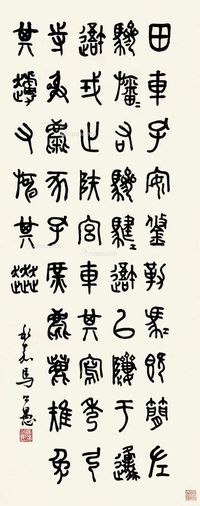 田車孔安鋚勒馬=既簡左
驂旛=右驂騝=吾以隮于邍
吾戎止陜宮車其寫秀弓
寺射麋豕孔庶麀鹿雉兔
其又其
永嘉馬公愚